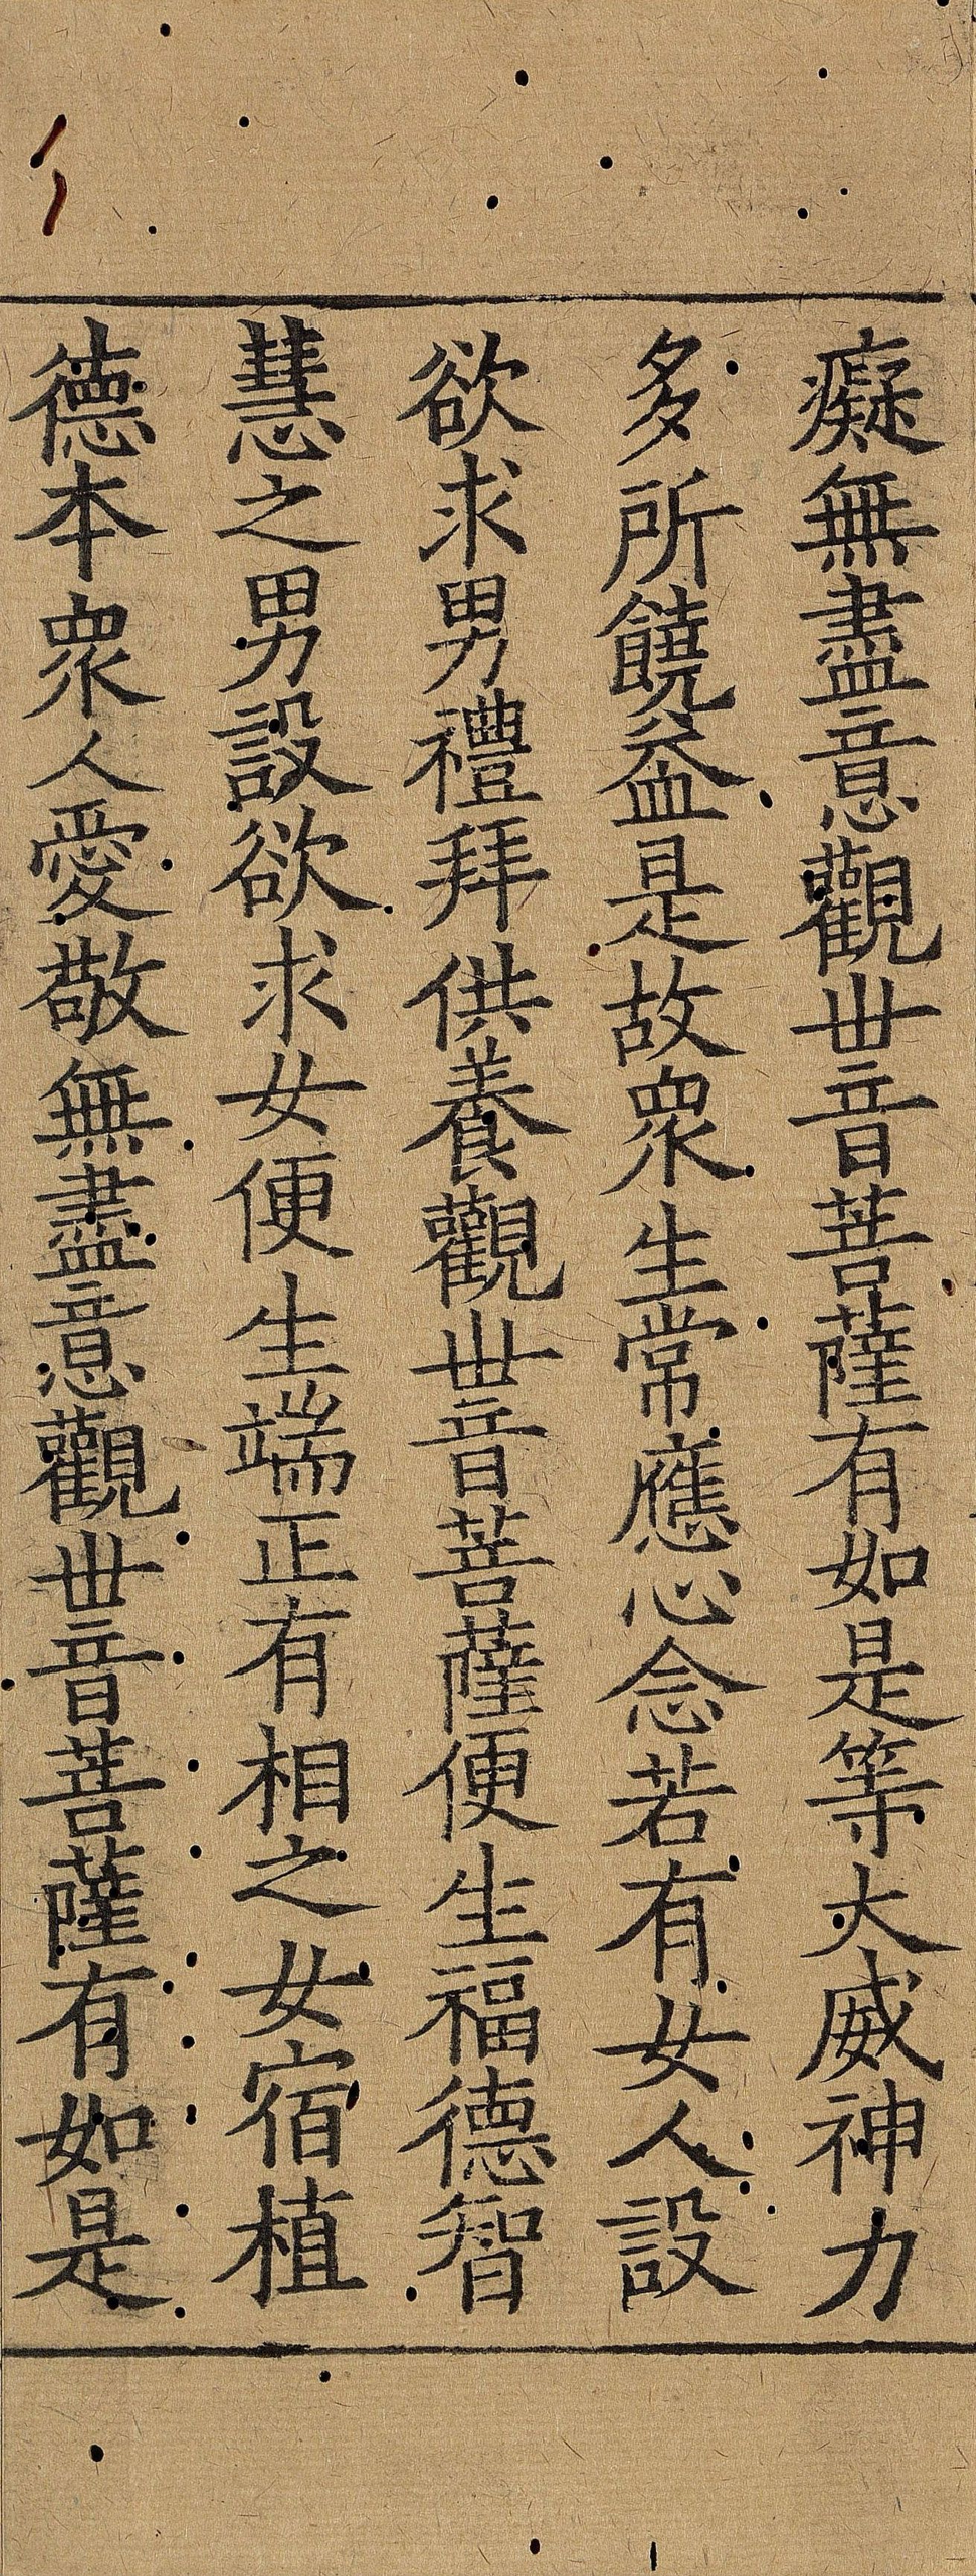 癡無盡意觀世音菩薩有如是等大威神力
多所饒益是故衆生常應心念若有女人設
欲求男禮拜供養觀世音菩薩便生福德智
慧之男設欲求女便生端正有相之女宿植
德本衆人愛敬無盡意觀世音菩薩有如是